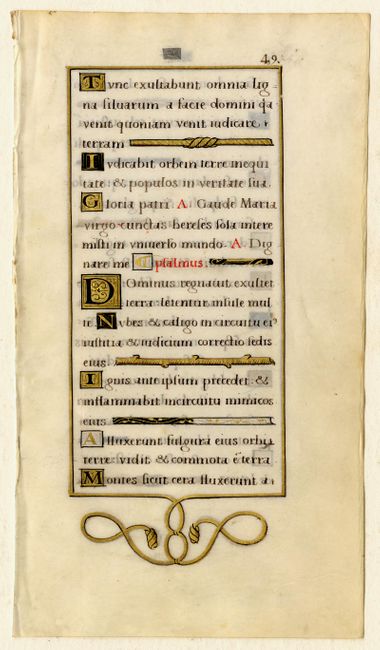 49.
Tunc exultabunt omnia lig
na siluarum a facie domini qa
venit quoniam venit iudicare
terram
Iudicabit orbem terre inequi
tate: & populos in veritate sua.
Gloria patri A. Gaude Maria
virgo cunctas hereses sola intere
misti in vniuerso mundo. A. Dig
nare me psalmus.
DOminus regnauit exultet
terra letentur insule mul
te. Nubes & caligo in circuitu ei
iustitia & iudicium correctio sedis
eius.
Ignis ante ipsum precedet &
inflammabit incircuitu inimicos
eius
Alluxerunt fulgura eius orbi
terre vidit & commota ē terra
Montes sicut cera fluxerunt a